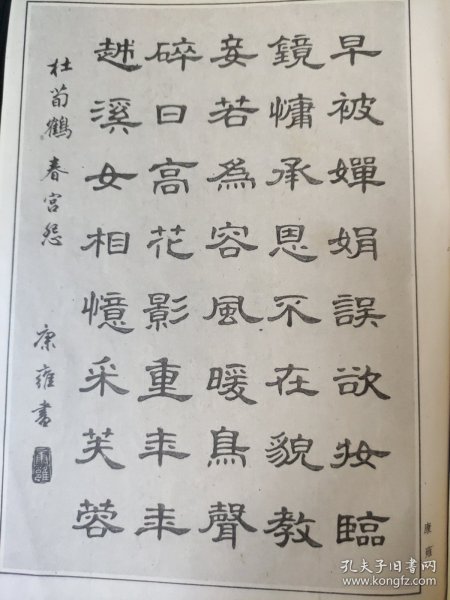 早被嬋娟誤欲妝臨
鏡慵承恩不在貌教
妾若為容風暖鳥聲
碎日高花影重年年
越溪女相憶采芙蓉
杜荀鶴春宮怨 康雍書
康雍
孔夫子旧书网
www.kongfz.com